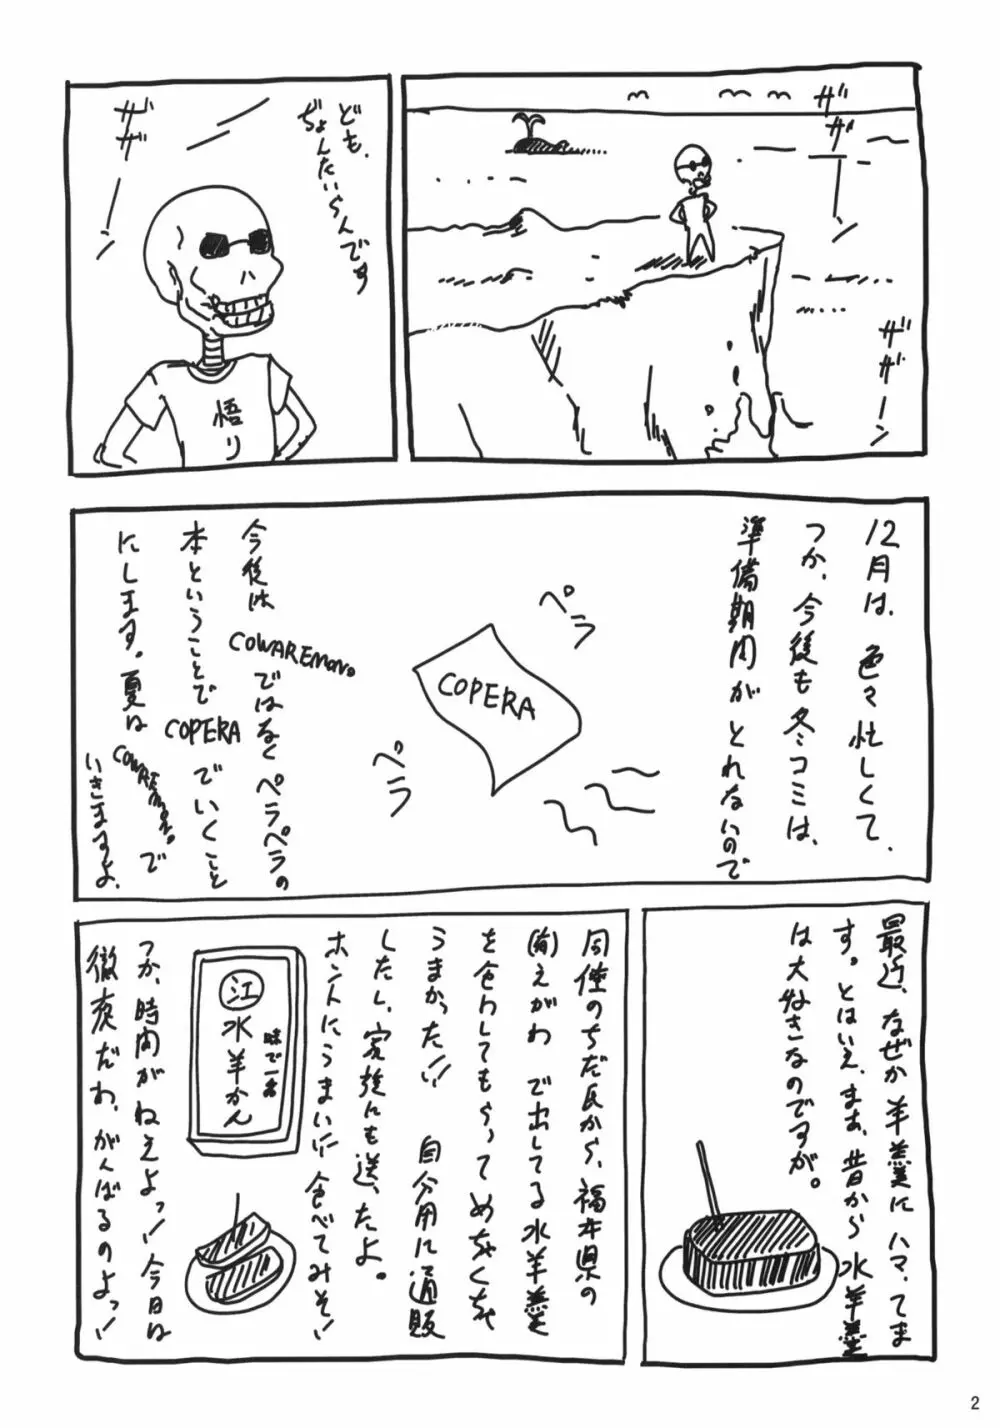 ザザーン
ザザーン
ども、
ぢょんたいらんです
ザザーン
悟り
12月は、色々忙しくて、
つか、今後も冬コミは、
準備期間がとれないので
ペラ
COPERA
ペラ
今後は COWAREMONO。ではなくペラペラの
本ということで COPERA でいくこと
にします。夏は COWAREMONO。で
いきますよ、
最近、なぜか羊羹にハマってま
す。とはいえ、まぁ、昔から水羊羹
は大好きなのですが。
同僚のちだ氏から、福井県の
(有)えがわ で出してる水羊羹
を食わしてもらってめちゃくちゃ
うまかった!! 自分用に通販
したし、家族にも送ったよ。
ホントにうまい!!食べてみそ!
江
味で一番
水羊かん
つか、時間がねえよっ!今日は
徹夜だわ、がんばるのよっ!
2